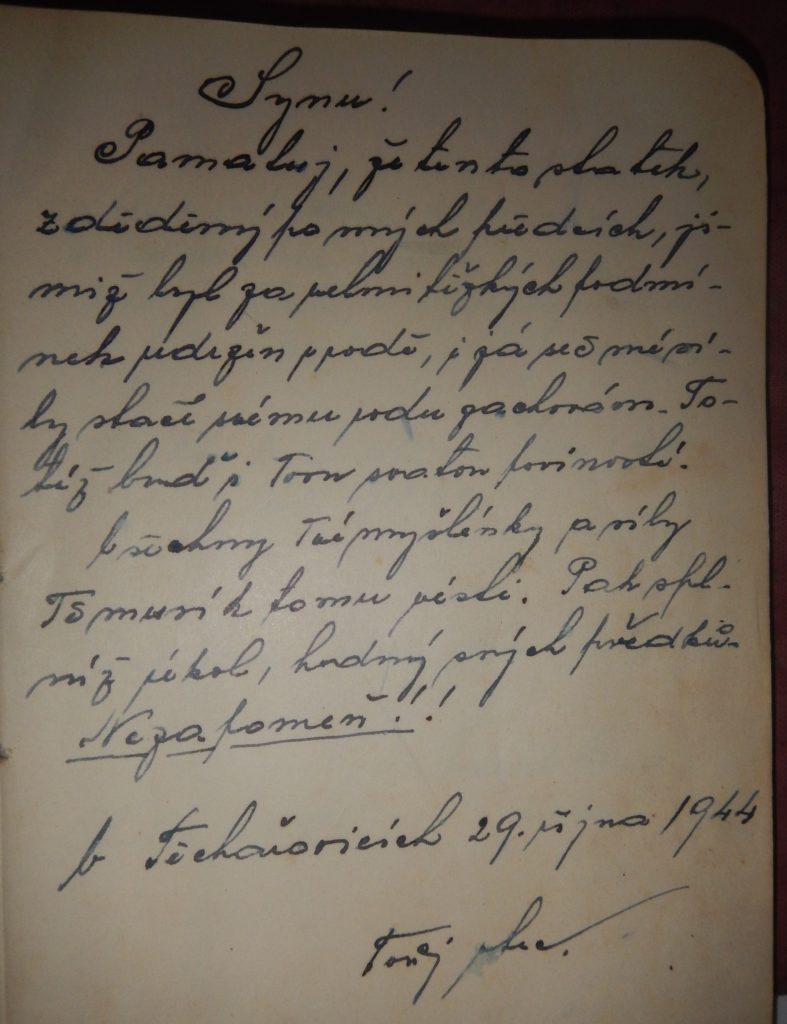 Synu!
Pamatuj, že tento statek,
zděděný po mých předcích, ji-
miž byl za velmi těžkých podmí-
nek udržen rodě, i já seč mé sí-
ly stačí svému rodu zachovám. To-
též buď i Tvou svatou povinností.
Všechny Tvé myšlénky a síly
Tě musí k tomu vésti. Pak spl-
níž úkol, hodný svých předků.
Nezapomeň!!
V Těchařovicích 29. října 1944
Tvůj otec.